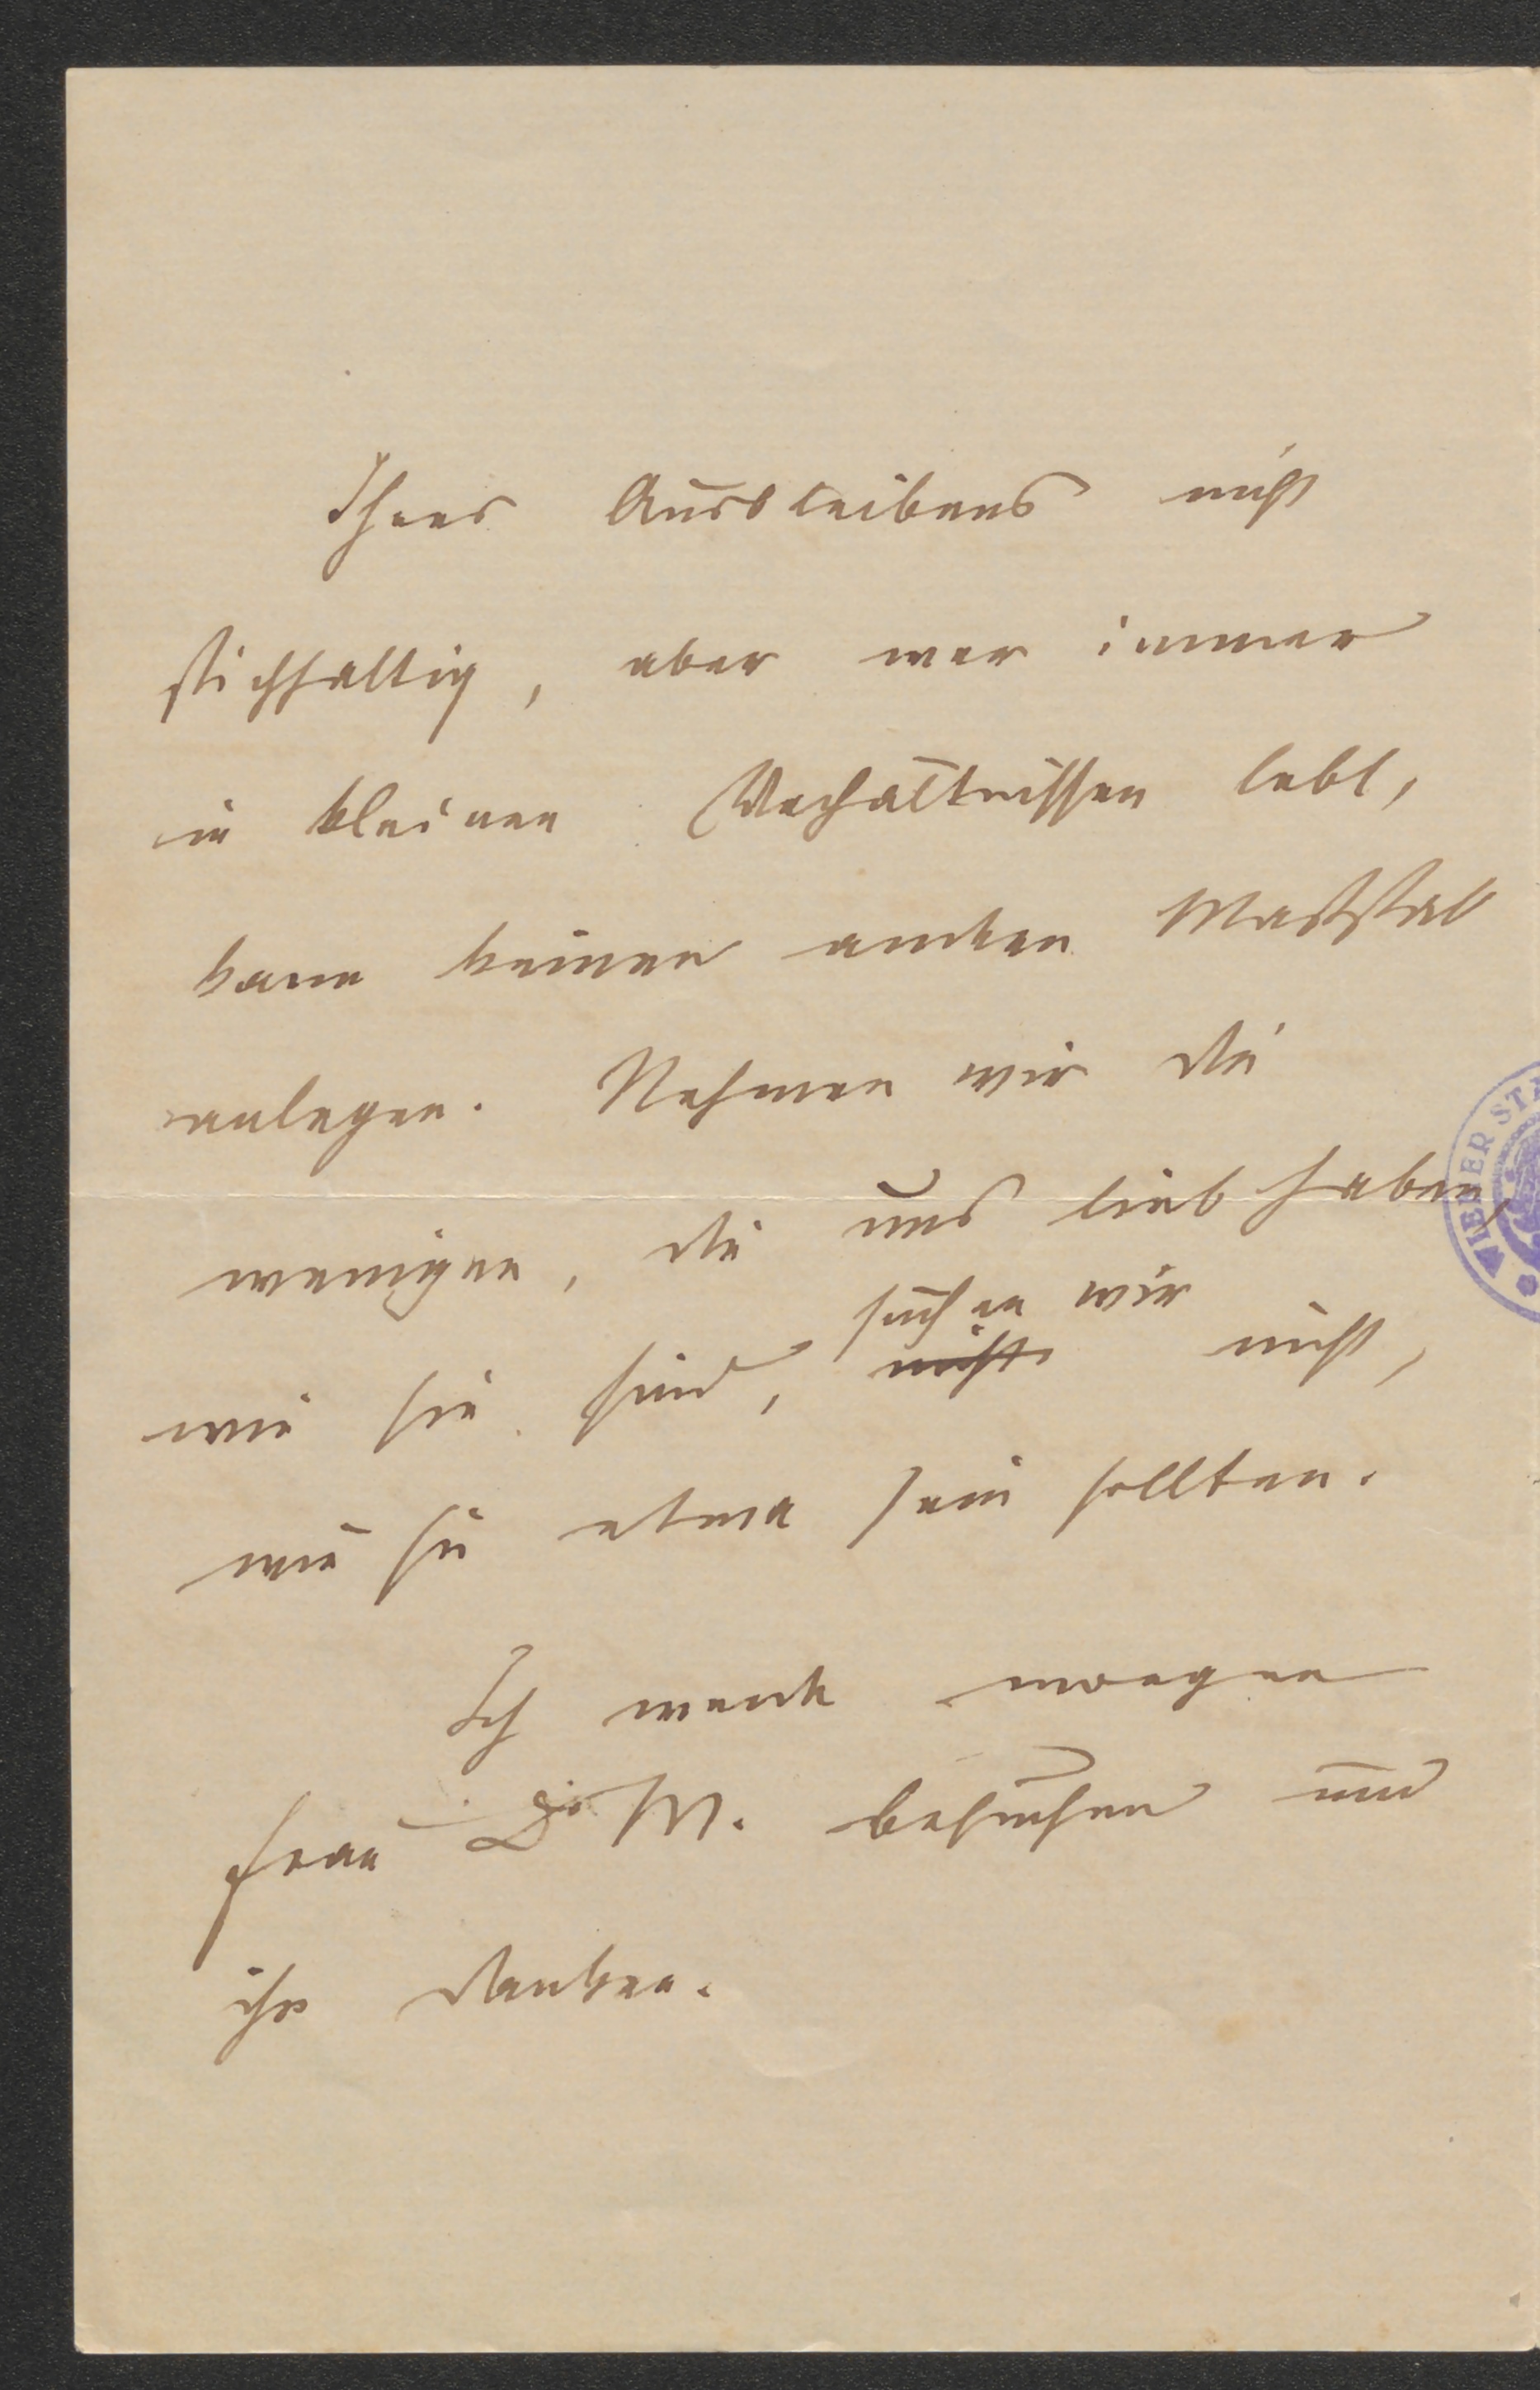 Ihres Ausbleibens nicht
stichhaltig, aber wer immer
in kleinen Verhältnissen lebt,
kann keinen andern Maßstab
anlegen. Nehmen wir die
wenigen, die uns lieb haben,
suchen wir
wie sie sind, nicht nicht,
wie sie etwa sein sollten.
Ich werde morgen
Frau Dr M. besuchen und
ihr danken.
WIENER ST